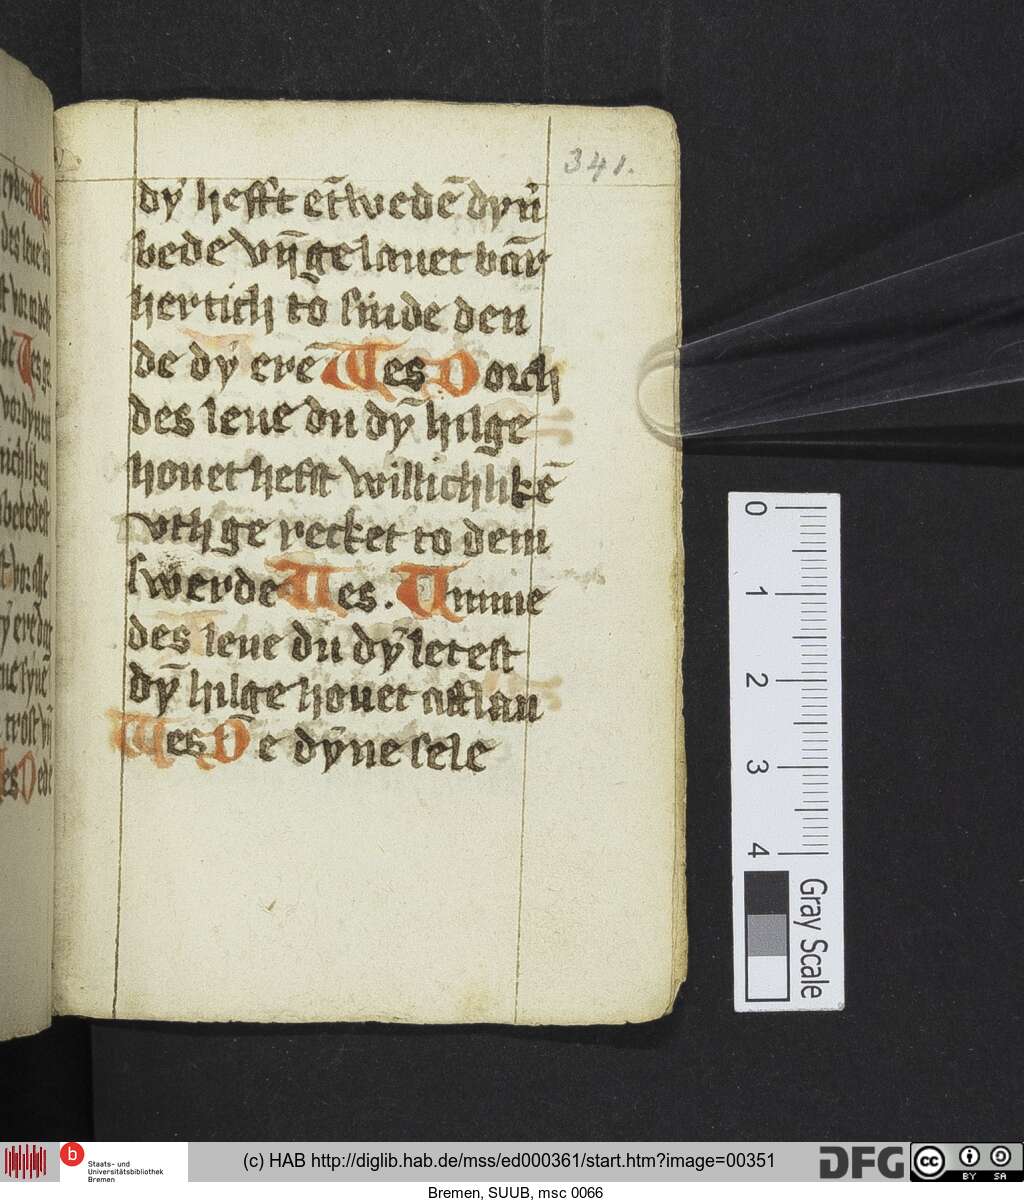 341.
dẏ hefft et̄wedē dyn̄
bede vn̄ gelauet bār
hertich tō sunde den
de dẏ erē Wes Dorch
des leue du dȳ hilge
houet hefft willichlikē
vth ge recket to dem
swerde Wes. Umme
des leue du dȳ letest
dȳ hilge houet afflau
Wes De dȳne sele
0
1
2
3
4
Gray Scale
b
Staats- und
Universitätsbibliothek
Bremen
(c) HAB http://diglib.hab.de/mss/ed000361/start.htm?image=00351
DFG
cc
BY SA
Bremen, SUUB, msc 0066